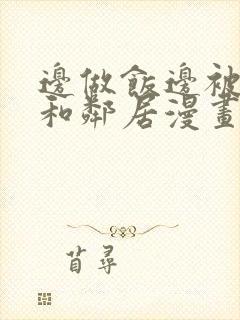 邊做飯邊被
和鄰居漫畫
苜尋